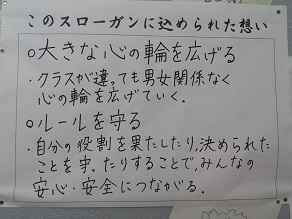 このスローガンに込められた想い
○大きな心の輪を広げる
・クラスが違っても男女関係なく
心の輪を広げていく.
○ルールを守る
・自分の役割を果たしたり,決められた
ことを守ったりすることで,みんなの
安心・安全につながる.